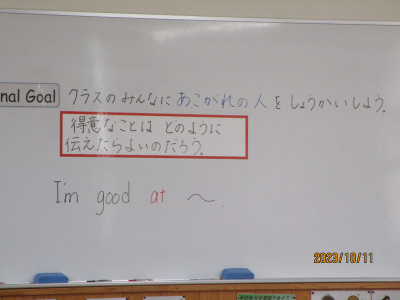 nal Goal クラスのみんなにあこがれの人をしょうかいしよう。
得意なことは どのように
伝えたらよいのだろう。
I'm good at ～.
2023/10/11